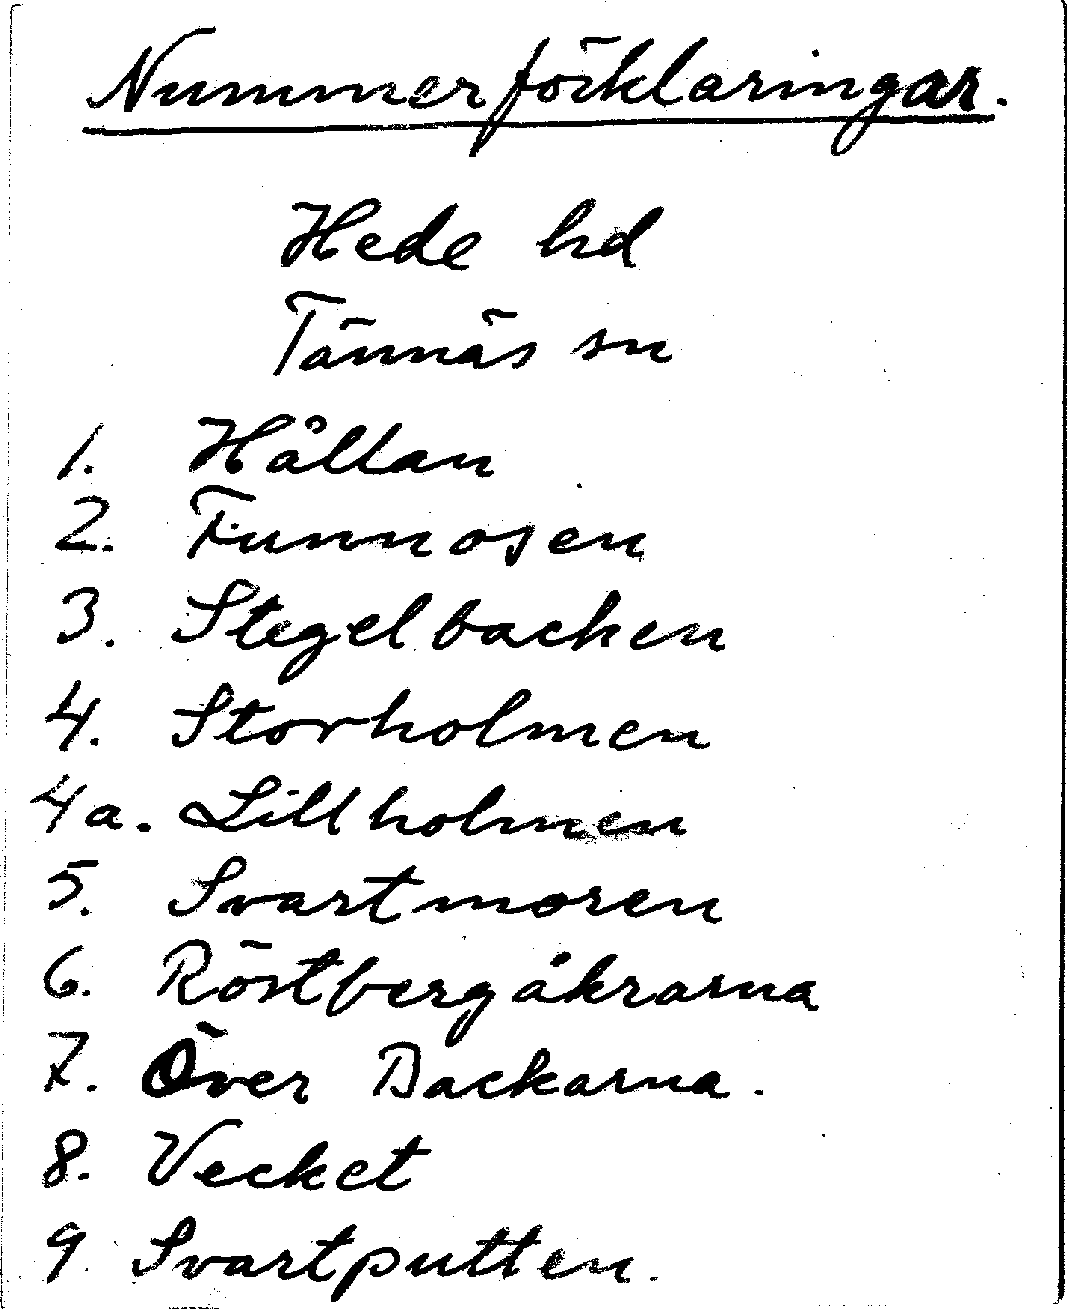 Nummerförklaringar.
Hede hd
Tännäs sn
1. Hållan
2. Funnosen
3. Stegelbacken
4. Storholmen
4a. Lillholmen
5. Svartmoren
6. Röstbergåkrarna
7. Över Backarna.
8. Vecket
9. Svartputten.